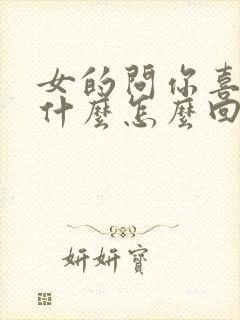 女的問你喜
什麼怎麼回
妍妍寶